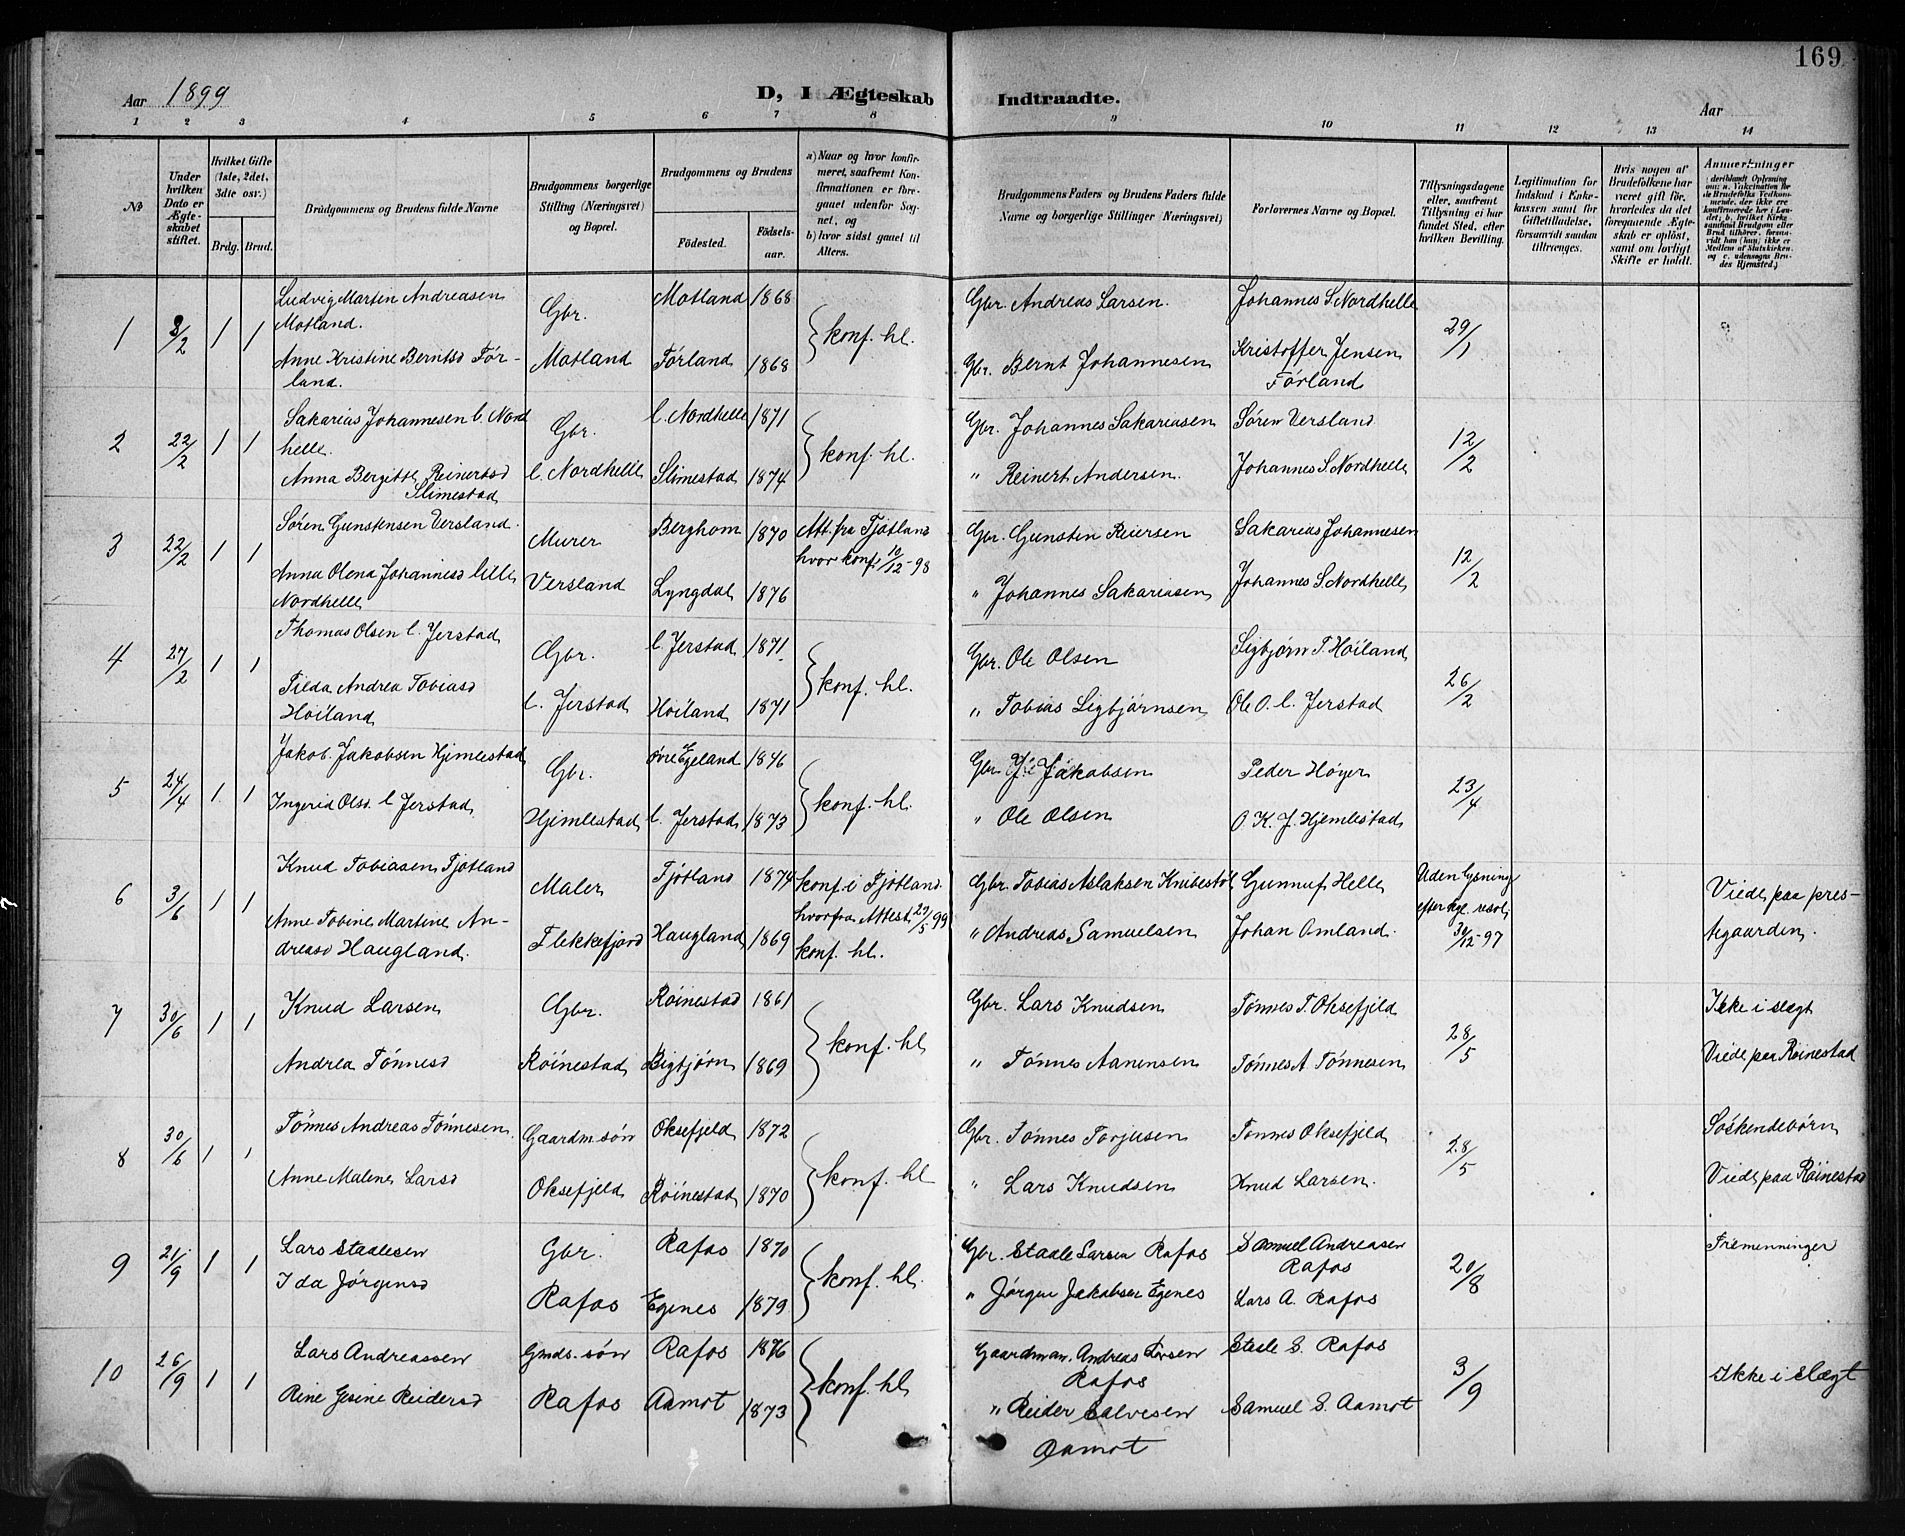 169
Aar 1899
D, I Ægteskab Indtraadte.
Aar
1 2 3 4 5 6 7 8 9 10 11 12 13 14
No
Under hvilken Dato er Ægteskabet stiftet.
Hvilket Gifte (1ste, 2det, 3die osv.)
Brdg. Brud.
Brudgommens og Brudens fulde Navne
Brudgommens borgerlige Stilling (Næringsvei) og Bopæl.
Brudgommens og Brudens
Fødested.
Fødselsaar.
a) Naar og hvor konfirmeret, saafremt Konfirmationen er foregaaet udenfor Sognet, og
b) hvor sidst gaaet til Alters.
Brudgommens Faders og Brudens Faders fulde Navne og borgerlige Stillinger (Næringsvei).
Forlovernes Navne og Bopæl.
Tillysningsdagene eller, saafremt Tillysning ei har fundet Sted, efter hvilken Bevilling.
Legitimation for Indskud i Enkekassen samt for Giftetilladelse, forsaavidt saadan tiltrænges.
Hvis nogen af Brudefolkene har været gift før, hvorledes da det foregaaende Ægteskab er opløst, samt om lovligt Skifte er holdt.
Anmærkninger
1 8/2 1 1 Ludvig Martin Andreasen Motland. Gbr. Motland 1868 konf. hl. Gbr. Andreas Larsen. Johannes S. Nordhelle 29/1
Anne Kristine Berntsd Førland. Motland Førland 1868 Gbr. Bernt Johannesen Kristoffer Jensen Førland
2 22/2 1 1 Sakarias Johannesen l. Nordhelle. Gbr. l. Nordhelle 1871 konf. hl. Gbr. Johannes Sakariasen Søren Versland 12/2
Anna Bergitte Reinertsd Slimestad l. Nordhelle Slimestad 1874 " Reinert Andersen. Johannes S. Nordhelle
3 22/2 1 1 Søren Gunstensen Versland. Murer Berghom 1870 Att. fra Fjotland hvor konf. 10/12-98 Gbr. Gunsten Reiersen Sakarias Johannesen 12/2
Anna Olena Johannesd lille Nordhelle Versland Lyngdal 1876 " Johannes Sakariasen Johannes S. Nordhelle
4 27/2 1 1 Thomas Olsen l. Jerstad Gbr. l. Jerstad 1871 konf. hl. Gbr. Ole Olsen Sigbjørn T. Høiland 26/2
Tilda Andrea Tobiasd Høiland l. Jerstad Høiland 1871 " Tobias Sigbjørnsen Ole O. l. Jerstad
5 24/4 1 1 Jakob Jakobsen Hjemlestad Gbr. øvre Egeland 1846 konf. hl. Gbr. J. Jakobsen Peder Høyer 23/4
Ingerid Olsd. l. Jerstad Hjemlestad l. Jerstad 1873 " Ole Olsen O. K. J. Hjemlestad
6 3/6 1 1 Knud Tobiasen Fjotland Maler Fjotland 1874 konf. i Fjotland hvorfra Attest 29/5 99 Gbr. Tobias Aslaksen Knibestøl Gunnuf Helle Uden lysning efter kgl. resol. 30/12-97 Viede paa prestegaarden.
Anne Tobine Martine Andreasd Haugland. Flekkefjord Haugland 1869 konf. hl. " Andreas Samuelsen Johan Omland.
7 30/6 1 1 Knud Larsen Gbr. Røinestad 1861 konf. hl Gbr. Lars Knudsen Tønnes T. Oksefjeld 28/5 Ikke i slegt
Andrea Tønnesd Røinestad Bigtjørn 1869 " Tønnes Aanensen Tønnes A Tønnesen Viede paa Røinestad
8 30/6 1 1 Tønnes Andreas Tønnesen. Gaardm. søn Oksefjeld 1872 konf. hl Gbr. Tønnes Torjusen Tønnes Oksefjeld 28/5 Søskendebørn
Anne Malene Larsd Oksefjeld Røinestad 1870 " Lars Knudsen Knud Larsen. Viede paa Røinestad
9 21/9 1 1 Lars Staalesen Gbr. Rafos 1870 konf. hl. Gbr. Staale Larsen Rafos Samuel Andreasen Rafos 20/8 Fremenninger
Ida Jørgensd Rafos Egenes 1879 " Jørgen Jakobsen Egenes Lars A. Rafos
10 26/9 1 1 Lars Andreassen Gmds. søn Rafos 1876 konf. hl Gaardman. Andreas Larsen Rafos Staale S. Rafos 3/9 Ikke i slægt
Rine Gesine Reidersd Rafos Aamot 1873 " Reider Salvesen Aamot Samuel S. Aamot